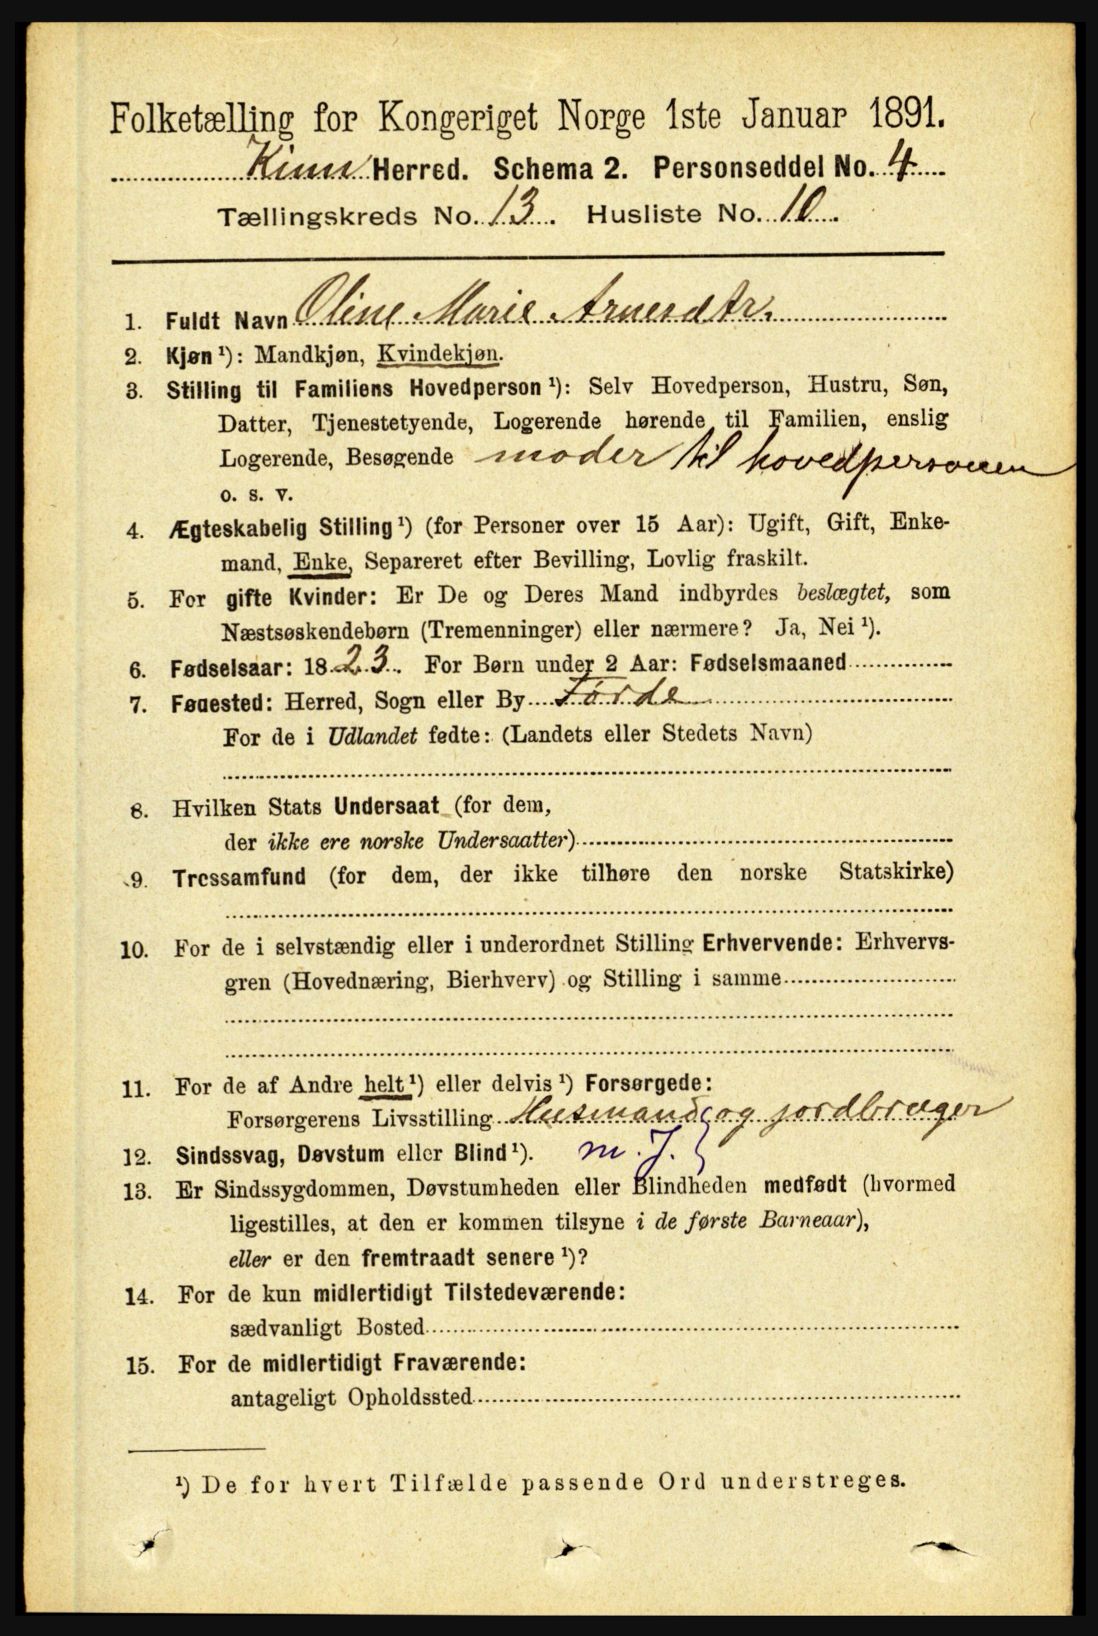 Folketælling for Kongeriget Norge 1ste Januar 1891.
Kinn Herred. Schema 2. Personseddel No. 4
Tællingskreds No. 13. Husliste No. 10.
1. Fuldt Navn Oline Marie Arnesdtr.
2. Kjøn ¹): Mandkjøn, Kvindekjøn.
3. Stilling til Familiens Hovedperson ¹): Selv Hovedperson, Hustru, Søn,
Datter, Tjenestetyende, Logerende hørende til Familien, enslig
Logerende, Besøgende moder til hovedpersonen
o. s. v.
4. Ægteskabelig Stilling ¹) (for Personer over 15 Aar): Ugift, Gift, Enke-
mand, Enke, Separeret efter Bevilling, Lovlig fraskilt.
5. For gifte Kvinder: Er De og Deres Mand indbyrdes beslægtet, som
Næstsøskendebørn (Tremenninger) eller nærmere? Ja, Nei ¹).
6. Fødselsaar: 1823. For Børn under 2 Aar: Fødselsmaaned
7. Føuested: Herred, Sogn eller By Førde
For de i Udlandet fødte: (Landets eller Stedets Navn)
8. Hvilken Stats Undersaat (for dem,
der ikke ere norske Undersaatter)
9. Trossamfund (for dem, der ikke tilhøre den norske Statskirke)
10. For de i selvstændig eller i underordnet Stilling Erhvervende: Erhvervs-
gren (Hovednæring, Bierhverv) og Stilling i samme
11. For de af Andre helt ¹) eller delvis ¹) Forsørgede:
Forsørgerens Livsstilling Husmand og jordbruger
12. Sindssvag, Døvstum eller Blind ¹). m. J.
13. Er Sindssygdommen, Døvstumheden eller Blindheden medfødt (hvormed
ligestilles, at den er kommen tilsyne i de første Barneaar),
eller er den fremtraadt senere ¹)?
14. For de kun midlertidigt Tilstedeværende:
sædvanligt Bosted
15. For de midlertidigt Fraværende:
antageligt Opholdssted
¹) De for hvert Tilfælde passende Ord understreges.